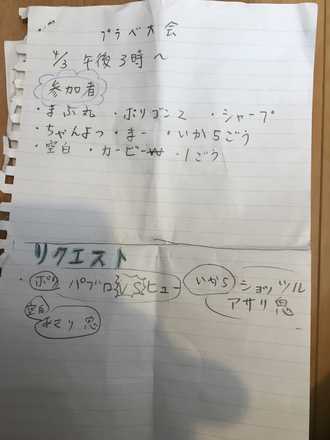 プラベ大会
4/3 午後3時～
参加者
・まぶ丸 ・ポリゴン2 ・シャープ
・ちゃんよつ ・まー ・いか5ごう
・空白 ・カービィw ・1ごう
リクエスト
・ポリ パブロVSヒュー いか5 ショッツル
アサリ 思
空白 あさり 思